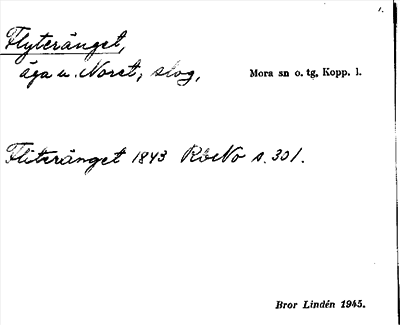 1.
Flyteränget,
äga u. Noret, slog,
Mora sn o. tg, Kopp. l.
Fliteränget 1843 RöcNo s. 301.
Bror Lindén 1945.